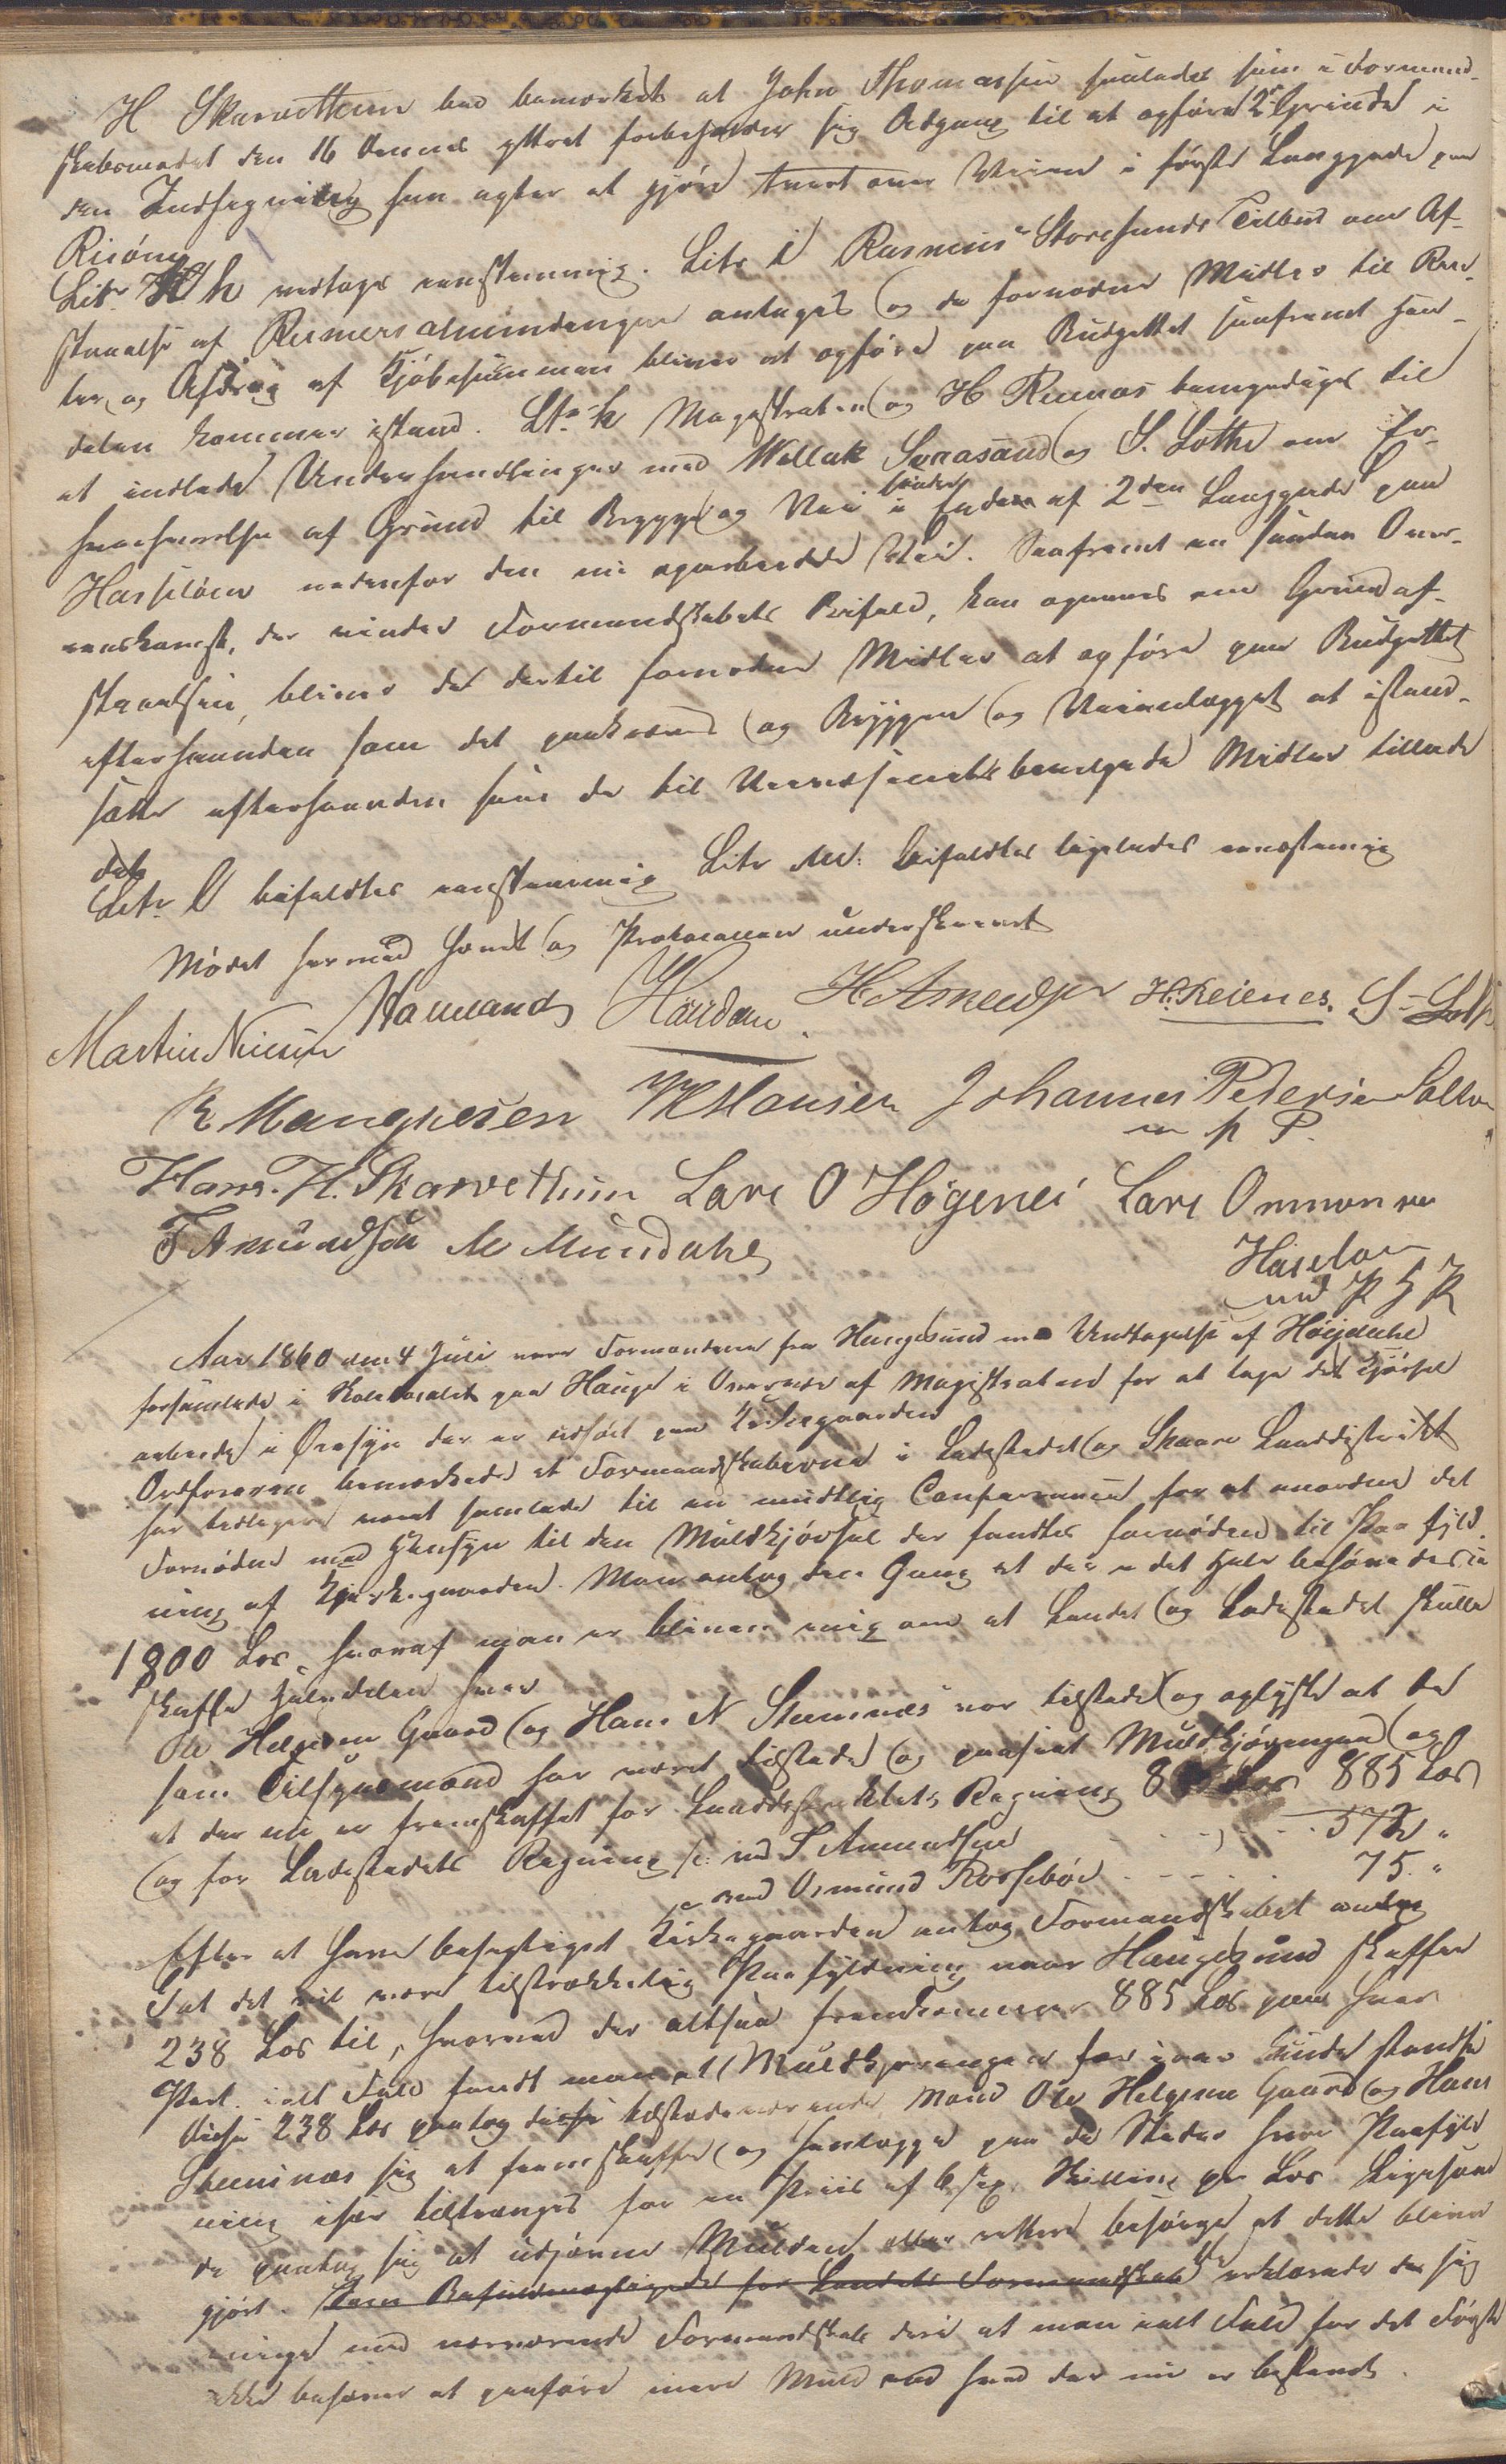 H Skarvethun bad bemærket at John Thomassen saaledes som i Formand-
skabsmødet den 16 dennes yttret forbeholder sig Adgang til at opføre 2de Grinde i
den Indhegning han agter at gjøre tvert over Veien i første Langgade paa
Risöen
Litr h vedtoges eenstemmig. Litr i Rasmus Storesunds Tilbud om Af-
staaelse af Reimers almindingen antages og de fornødne Midler til Ren-
ter og Afdrag af Kjöbesummen bliver at opføre paa Budgettet saafremt Han-
delen kommer istand. Litr k Magistraten og H Reinæs bemyndiges til
at indlede Underhandlinger med Mallak Sørasand og S. Lothe om Er-
hvervelse af Grund til Brygge og Vei i søndre Enden af 2den Langgade paa
Hasselöen nedenfor den nu oparbeidede Vei. Saafremt en saadan Over-
eenskomst, der vinder Formandskabets Bifald, kan opnaaes om Grundaf-
staaelsen, bliver de dertil fornødne Midler at opføre paa Budgettet
efterhaanden som det paakræves og Bryggen og Veianlægget at istand-
sætte efterhaanden som de til Veivæsenet bevilgede Midler tillade
det
Litr l bifaldtes eenstemmig Litr m: bifaldtes ligeledes eenstemmig
Mødet hermed hævet og Protocollen underskrevet
Martin Nielsen Hammand Houdan. H Amundsen H. Reienes. S. Loth
R Mangnesen K Hansen Johannes Pedersen Salta
m p P.
Hans. H. Skarvethun Lars O Högenei Lars Osmonsen
T Amundsen M Mundahl Haselø
med P G P
Aar 1860 den 4 Juli var Formændene fra Haugesund med Undtagelse af Högedahl
forsamlede i Skolelocalet paa Hauge i Overvær af Magistraten for at tage det Kjørsel
arbeide i Øiesyn der er udført paa Kirkegaarden
Ordføreren bemærkede at Formandskaberne i Ladestedet og Skaare Landdistrikt
har tidligere været samlede til en mundtlig Conferance for at anordne det
Fornødne med Hensyn til den Muldkjørsel der fandtes fornøden til Paafyld-
ning af Kirkegaarden. Man antog den Gang at der i det Hele behøvedes
1800 Læs, hvoraf man er bleven enig om at Landet og Ladestedet skulle
skaffe Halvdelen hver
Ole Helgesen Gaard og Hans N Steensnæs var tilstede og oplyste at de
som Tilsynsmænd har været tilstede og paaseet Muldkjøringen og
at der nu er fremskaffet for Landdistriktets Regning 885 Læs
og for Ladestedets Regning, ved S Amundsen - - - 572 "
" ved Osmund Rossebø - - - 75. "
Efter at have besigtiget Kirkegaarden antog Formandskabet
at det vil være tilstrækkelig Paafyldning naar Haugesund skaffer
238 Læs til, hvorved der altsaa fremkommer 885 Læs paa hver
Part. i alt Fald fandt man at Muldkjøringen for iaar kunde standse
Disse 238 Læs paatog disse tilstedeværende Mænd Ole Helgesen Gaard og Hans
Steensnæs sig at fremskaffe og henlægge paa de Steder hvor Paafyld-
ning især tiltrænges for en Priis af 6 sex Skilling pr Læs Ligesom
de paatog sig at udjævne Mulden eller rettere besørge at dette blive
gjort. Som Befuldmægtigede for Landets Formandskab erklærede de sig
enige med nærværende Formandskab deri at man i alt Fald for det Første
ikke behøver at paaføre mere Muld end hvad der nu er bestemt.